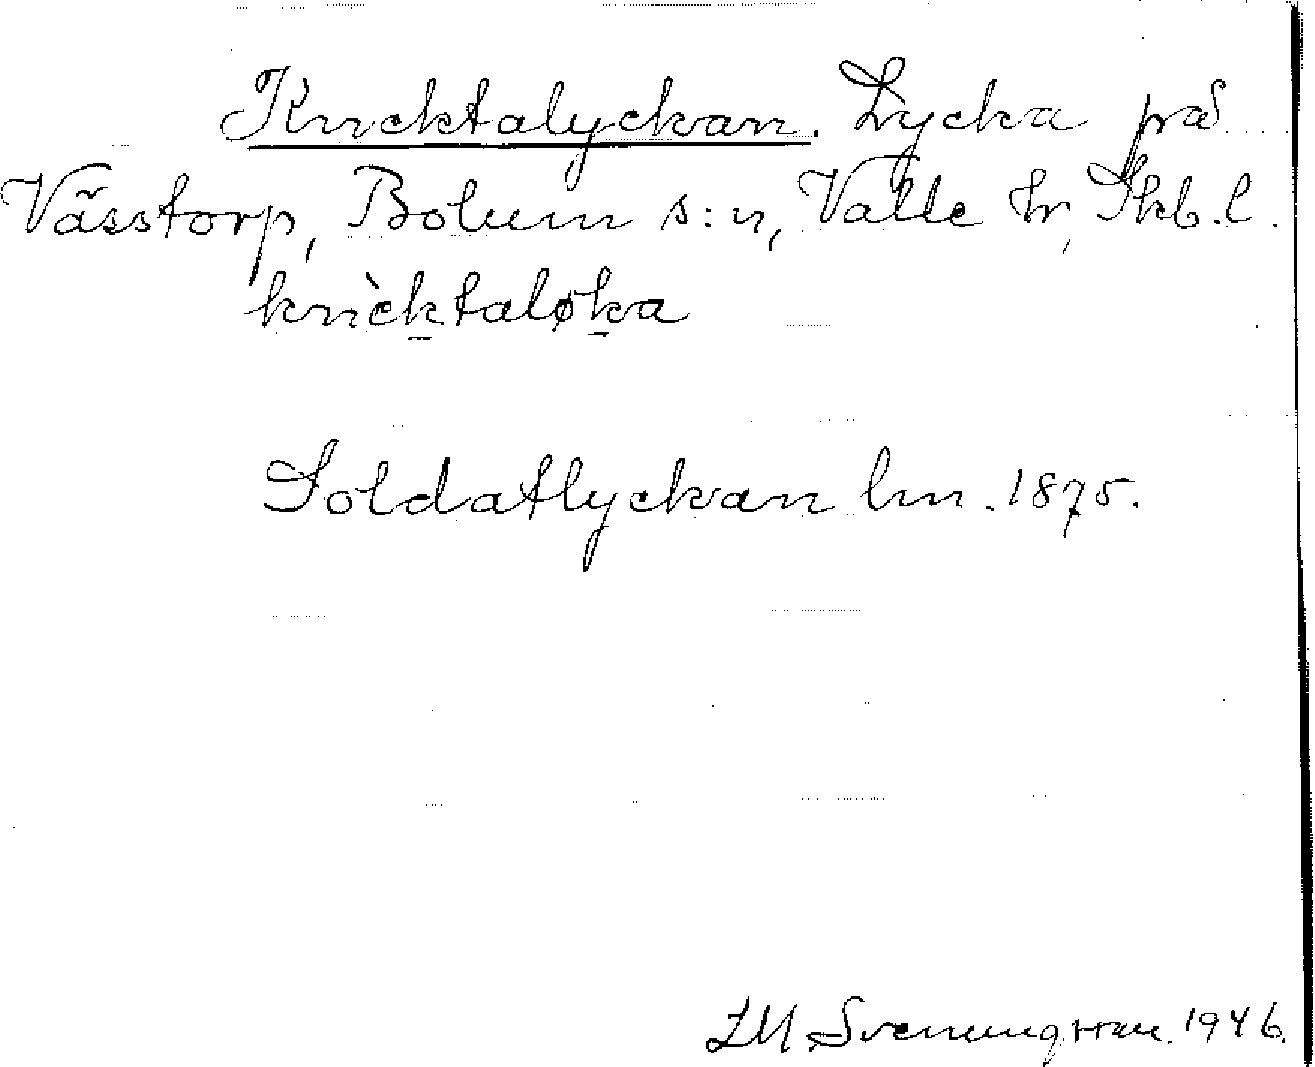 Knektalyckan. Lycka på
Västorp, Bolum s:n, Valle hr, Skb.l.
knèktaløka
Soldatlyckan lm. 1875.
LM Svenungsson. 1946.